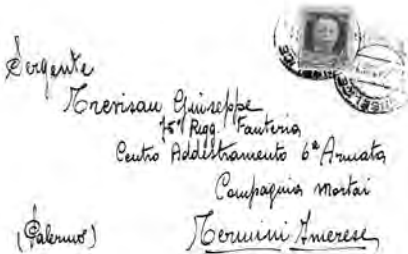 Sergente
Trevisan Giuseppe
75° Regg. Fanteria
Centro Addestramento 6ª Armata
Compagnia Mortai
(Palermo) Termini Imerese